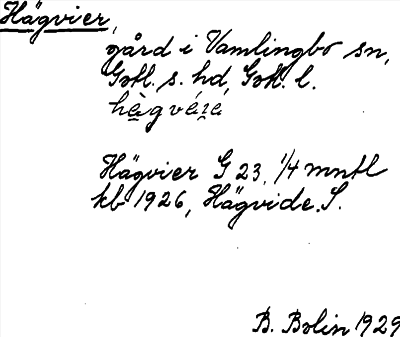 Hägvier,
gård i Vamlingbo sn,
Gotl. s. hd, Gotl. l.
Hägvier G 23, 1/4 mntl
kb 1926, Hägvide. S.
B. Bolin 1929